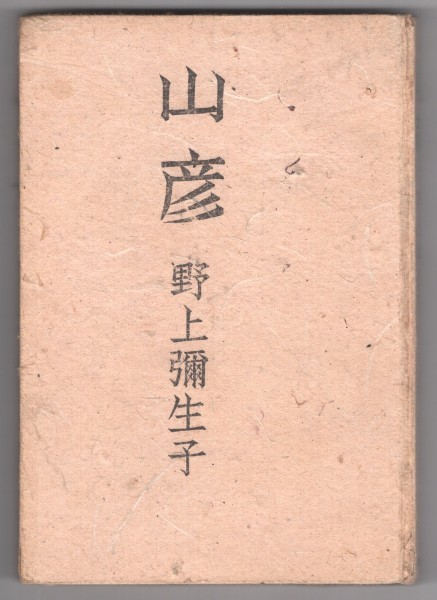 山彦
野上彌生子